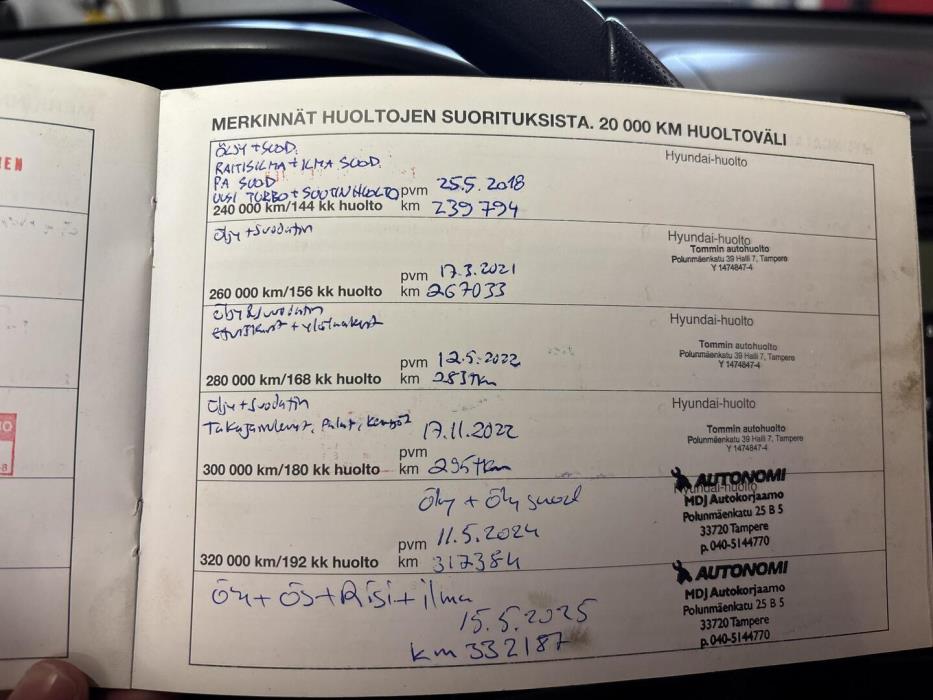 EN
MERKINNÄT HUOLTOJEN SUORITUKSISTA. 20 000 KM HUOLTOVÄLI
ÖLJY + SUOD.
RAITISILMA + ILMA SUOD.
PA SUOD
UUSI TURBO + SUUTINHUOLTO
Hyundai-huolto
pvm 25.5.2018
240 000 km/144 kk huolto km 239 794
Öljy + suodatin
Hyundai-huolto
Tommin autohuolto
Polunmäenkatu 39 Halli 7, Tampere
Y 1474847-4
pvm 17.3.2021
260 000 km/156 kk huolto km 267033
Öljy & suodatin
+ ylätukivarret
Hyundai-huolto
Tommin autohuolto
Polunmäenkatu 39 Halli 7, Tampere
Y 1474847-4
pvm 12.5.2022
280 000 km/168 kk huolto km 283tkm
Öljy + suodatin
Takajarrulevyt, Palat, kengät
Hyundai-huolto
Tommin autohuolto
Polunmäenkatu 39 Halli 7, Tampere
Y 1474847-4
17.11.2022
pvm
300 000 km/180 kk huolto km 295tkm
Öljy + Öljysuod
Hyundai-huolto
AUTONOMI
MDJ Autokorjaamo
Polunmäenkatu 25 B 5
33720 Tampere
p. 040-5144770
pvm 11.5.2024
320 000 km/192 kk huolto km 317384
Öly + ÖS + Risi + ilma
15.5.2025
km 332187
AUTONOMI
MDJ Autokorjaamo
Polunmäenkatu 25 B 5
33720 Tampere
p. 040-5144770